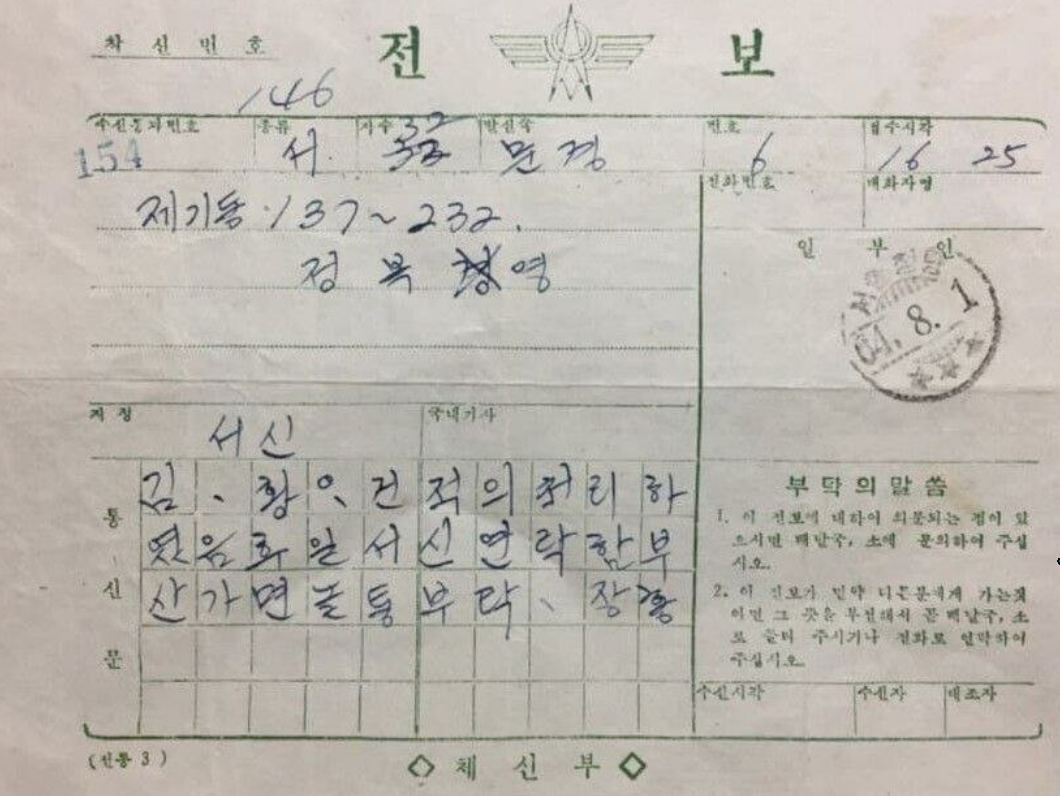 착 신 번 호
전 보
146
수신통과번호 종류 자수 발신국 번호 접수시각
154 서. 32 문경 6 16 25
전화번호 대화자명
제기동 137~232.
정 복 영
일 부 인
64. 8. 1
지 정 국내기사
서신
통 신 문
김、황은、건 적의처리하
였음회일서신연락함부
산가면 통부탁、장
부 탁 의 말 씀
1. 이 전보에 대하여 의문되는 점이 있
으시면 배달국, 소에 문의하여 주십
시오.
2. 이 전보가 만약 다른분에게 가는것
이면 그 뜻을 부전해서 곧 배달국, 소
로 돌려 주시거나 전화로 연락하여
주십시오
수신시각 수신자 대조자
(전통 3)
◇ 체 신 부 ◇